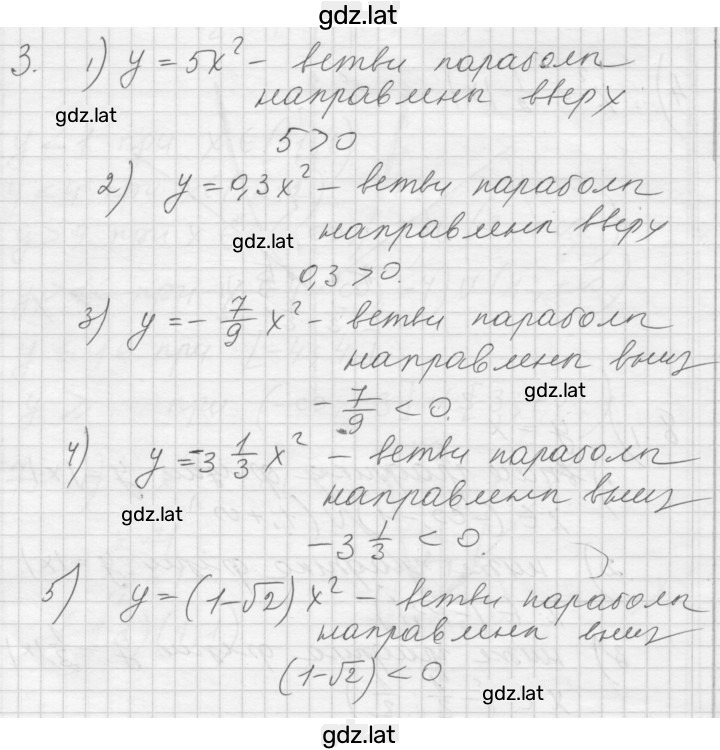 gdz.lat
3. 1) y = 5x² – ветви параболы
направлены вверх
gdz.lat
5 > 0
2) y = 0,3x² – ветви параболы
направлены вверх
gdz.lat
0,3 > 0.
3) y = – 7/9 x² – ветви параболы
направлены вниз
gdz.lat
– 7/9 < 0.
4) y = –3 1/3 x² – ветви параболы
направлены вниз
gdz.lat
–3 1/3 < 0.
5) y = (1–√2) x² – ветви параболы
направлены вниз
(1–√2) < 0
gdz.lat
gdz.lat